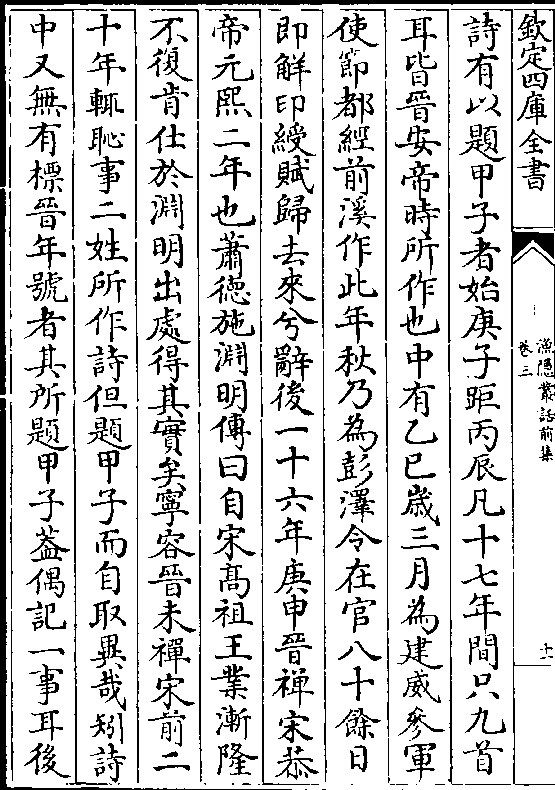 欽定四庫全書
漁隱叢話前集
卷三
十一
詩有以題甲子者始庚子距丙辰凡十七年間只九首
耳皆晉安帝時所作也中有乙巳歲三月為建威參軍
使節都經前溪作此年秋乃為彭澤令在官八十餘日
即解印綬賦歸去來兮辭後一十六年庚申晉禅宋恭
帝元熙二年也蕭德施淵明傳曰自宋髙祖王業漸隆
不復肯仕於淵明出處得其實矣寧容晉未禪宋前二
十年輒恥事二姓所作詩但題甲子而自取異哉矧詩
中又無有標晉年號者其所題甲子葢偶記一事耳後